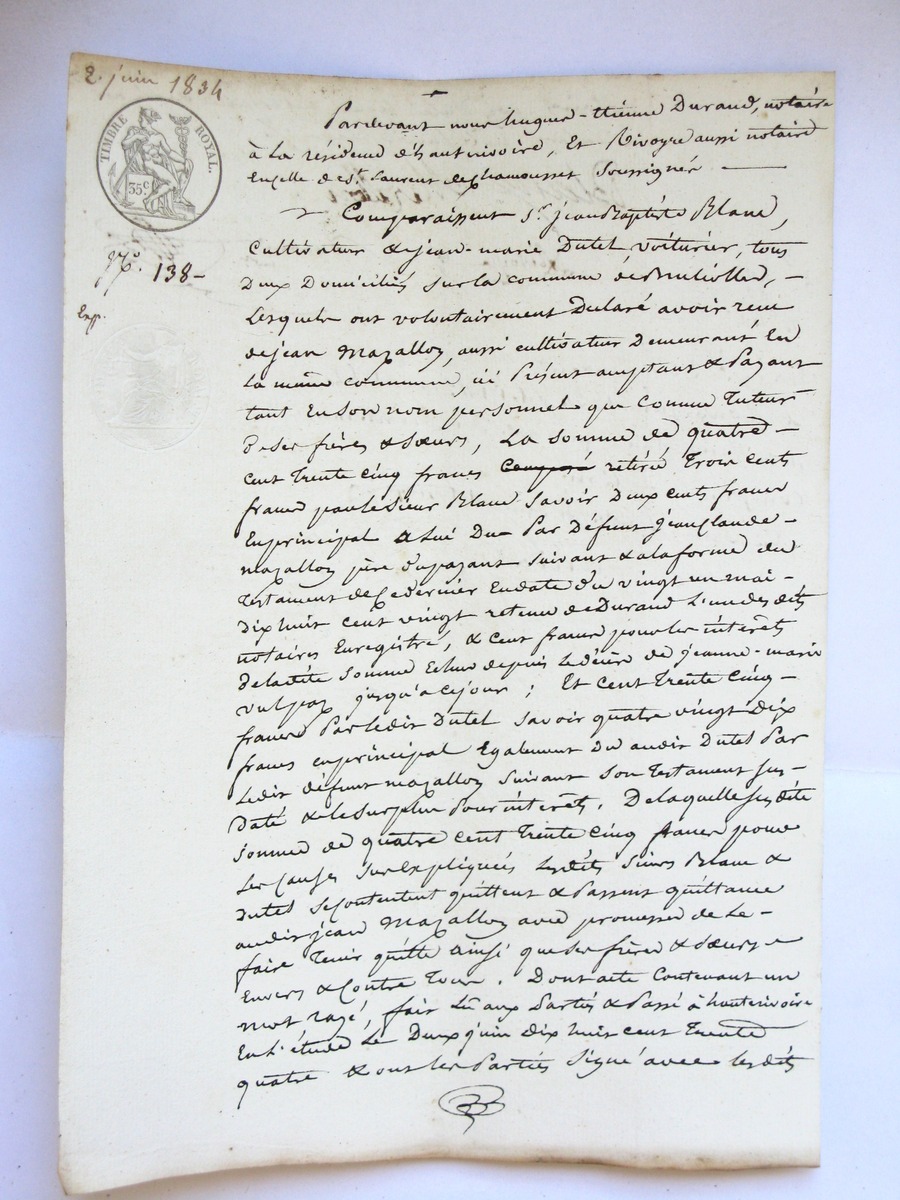 2. juin 1834
TIMBRE ROYAL.
35 c.
N.o 138 -
Exp.
Pardevant nous hugues-étienne Durand, notaire
à La résidence d'hauterivoire, Et Rivoyre aussi notaire
En celle de St. Laurent de Chamousset Soussignés
Comparaissent Sr. jean Baptiste Blanc,
cultivateur & jean-marie Dutel, voiturier, tous
Deux Domiciliés sur la commune de Brullioles, -
Lesquels ont volontairement Déclaré avoir reçu
de jean Mazalloy, aussi cultivateur Demeurant En
La même commune, ici Présent acceptant & Payant
tant En son nom personnel que comme Tuteur
De ses frères & sœurs, La somme de quatre -
cent Trente cinq francs Composé retirée Trois cents
francs par le sieur Blanc Savoir Deux cents francs
En principal à lui Du Par Défunt jean Claude -
Mazalloy père du payant suivant & a la forme du
Testament de Ce dernier En date du vingt un mai -
Dix huit cent vingt retenu de Durand L'un des dits
notaires Enregistré, & cent francs pour les intérêts
De la dite somme Echus depuis Le décès de jeanne-marie
Vulpas jusqu'a ce jour ; Et cent Trente cinq -
francs Par ledit Dutel Savoir quatre vingt Dix
francs en principal Egalement Du audit Dutel Par
Ledit défunt Mazalloy suivant son Testament sus -
Daté & le surplus Pour intérêts. De laquelle susdite
somme de quatre cent Trente cinq francs pour
Les causes sus expliquées Lesdits sieurs Blanc &
Dutel se contentent quittent & Passent quittance
audit jean Mazalloy avec promesse de Le -
faire Tenir quitte ainsi que ses frères & sœurs
Envers & Contre Tous. Dont acte Contenant un
mot rayé, fait Lu aux Parties & Passé à hauterivoire
En L'étude Le Deux juin Dix huit cent Trente
quatre & ont les Parties Signé avec lesdits